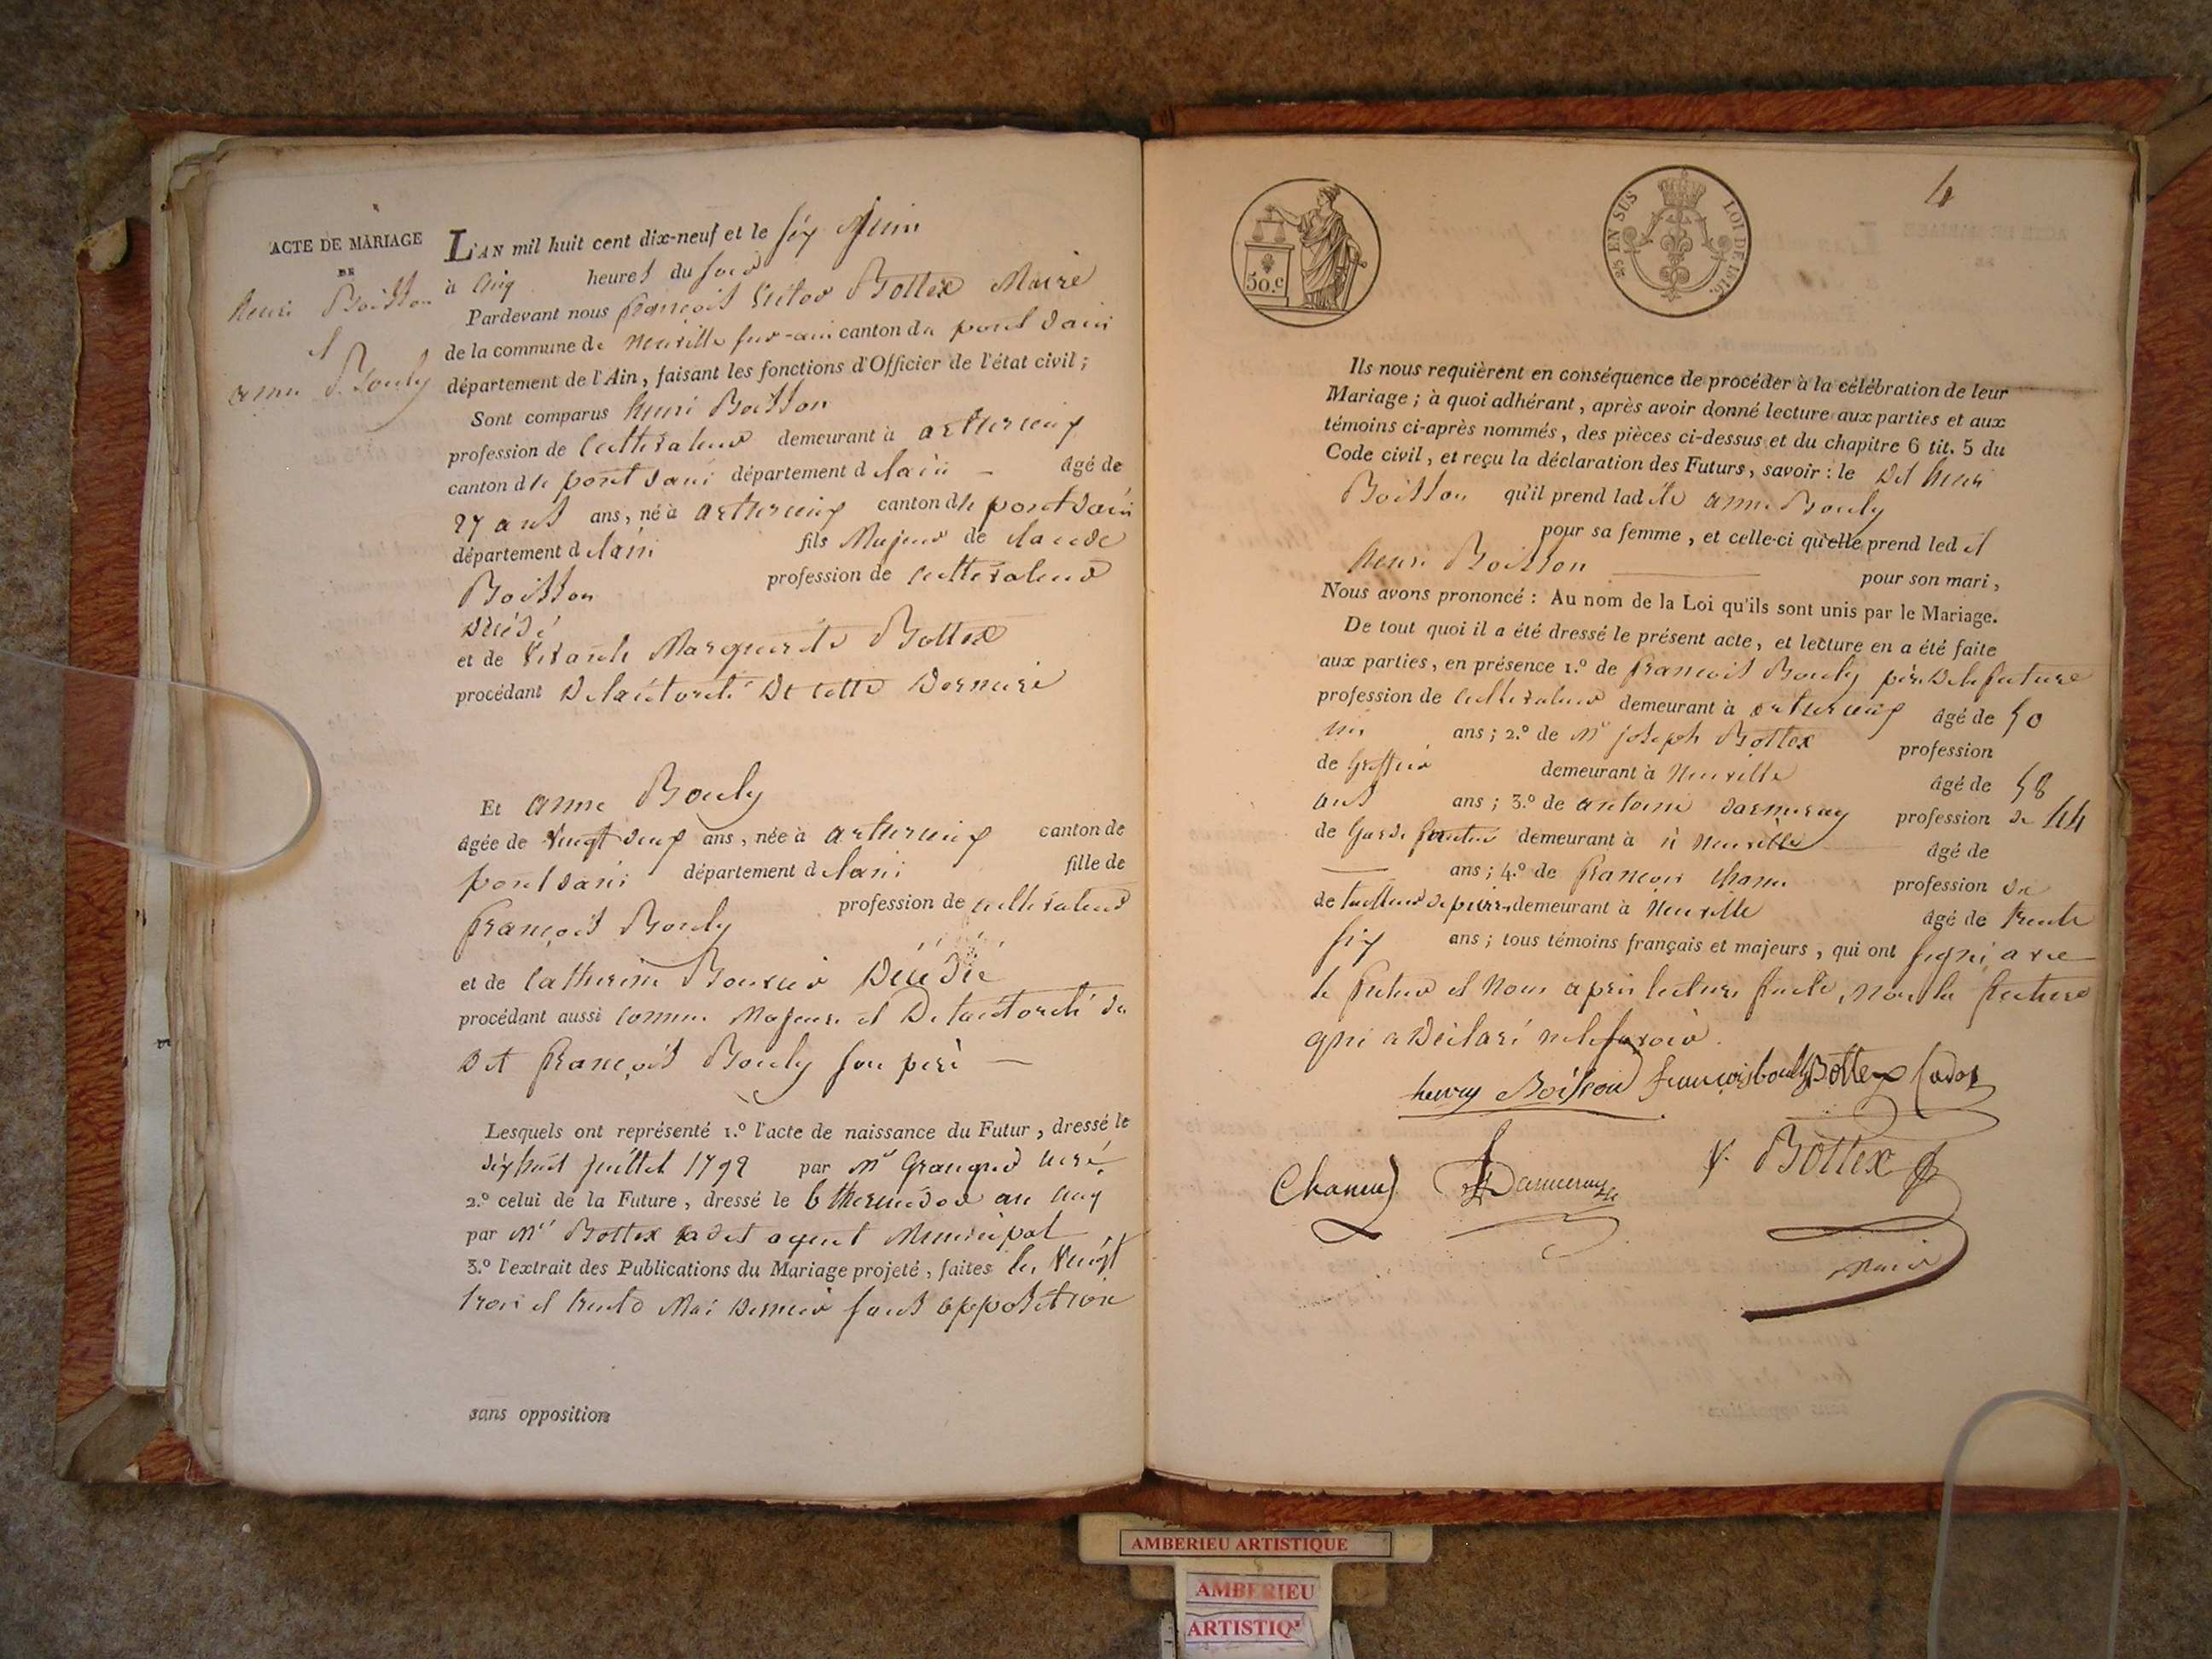 ACTE DE MARIAGE
DE
henri Boisson
et
anne Bouly
L'AN mil huit cent dix-neuf et le six Juin
à cinq heures du soir
Pardevant nous françois Victor Bottex Maire
de la commune de neuville sur-ain canton du pont dain
département de l'Ain, faisant les fonctions d'Officier de l'état civil;
Sont comparus henri Boisson
profession de cultivateur demeurant à
canton de pont dain département d lain âgé de
27 ans ans, né à canton de pont dain
département d lain fils Majeur de claude
Boisson profession de cultivateur
décédé
et de vivante Marguerite Bottex
procédant de lautorité de cette derniere
Et anne Bouly
âgée de vingt deux ans, née à canton de
pont dain département d lain fille de
françois Bouly profession de cultivateur
et de Catherine décédée
procédant aussi comme Majeure et De lautorité du
dit françois Bouly son père
Lesquels ont représenté 1.º l'acte de naissance du Futur, dressé le
dix huit juillet 1792 par Mr curé
2.º celui de la Future, dressé le 6 thermidor an cinq
par Mr Bottex cadet agent Municipal
3.º l'extrait des Publications du Mariage projeté, faites les vingt
trois et trente Mai dernier sans opposition
sans opposition
4
50.c
25 EN SUS
LOI DE 1816.
Ils nous requièrent en conséquence de procéder à la célébration de leur
Mariage; à quoi adhérant, après avoir donné lecture aux parties et aux
témoins ci-après nommés, des pièces ci-dessus et du chapitre 6 tit. 5 du
Code civil, et reçu la déclaration des Futurs, savoir: le dit henri
Boisson qu'il prend ladite anne Bouly
pour sa femme, et celle-ci qu'elle prend ledit
henri Boisson pour son mari,
Nous avons prononcé: Au nom de la Loi qu'ils sont unis par le Mariage.
De tout quoi il a été dressé le présent acte, et lecture en a été faite
aux parties, en présence 1.º de françois Bouly père de la future
profession de cultivateur demeurant à âgé de 50
ans; 2.º de Mr joseph Bottex profession
de Greffier demeurant à Neuville âgé de 58
ans ans; 3.º de antoine profession de 44
de Garde demeurant à Neuville âgé de
ans; 4.º de françois profession de
de tailleur de pierre demeurant à Neuville âgé de trente
six ans; tous témoins français et majeurs, qui ont signé avec
le futur et Nous après lecture faite, non la future
qui a déclaré ne le savoir.
henry Boisson françois bouly Bottex Cadet
V. Bottex
Maire
AMBERIEU ARTISTIQUE
AMBERIEU
ARTISTIQ